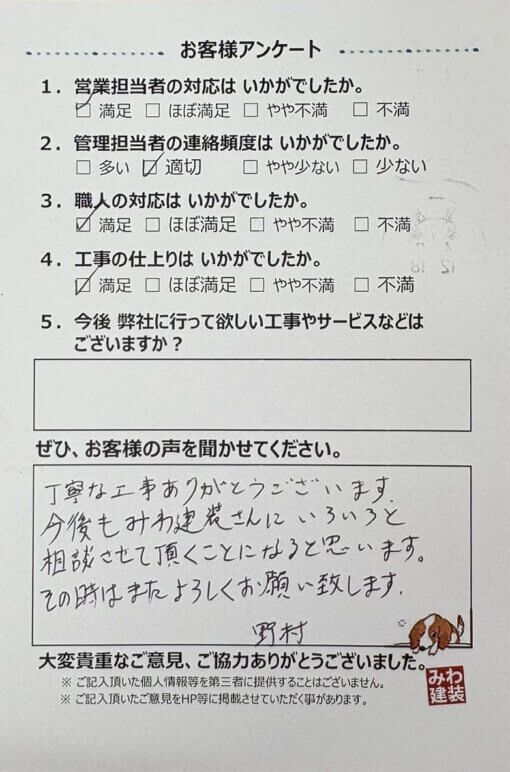 お客様アンケート
1．営業担当者の対応は いかがでしたか。
☑ 満足 □ ほぼ満足 □ やや不満 □ 不満
2．管理担当者の連絡頻度は いかがでしたか。
□ 多い ☑ 適切 □ やや少ない □ 少ない
3．職人の対応は いかがでしたか。
☑ 満足 □ ほぼ満足 □ やや不満 □ 不満
4．工事の仕上りは いかがでしたか。
☑ 満足 □ ほぼ満足 □ やや不満 □ 不満
5．今後 弊社に行って欲しい工事やサービスなどは
ございますか？
ぜひ、お客様の声を聞かせてください。
丁寧な工事ありがとうございます.
今後もみわ建装さんに いろいろと
相談させて頂くことになると思います。
その時はまたよろしくお願い致します.
野村
大変貴重なご意見、ご協力ありがとうございました。
※ ご記入頂いた個人情報等を第三者に提供することはございません。
※ ご記入頂いたご意見をHP等に掲載させていただく事があります。
みわ
建装